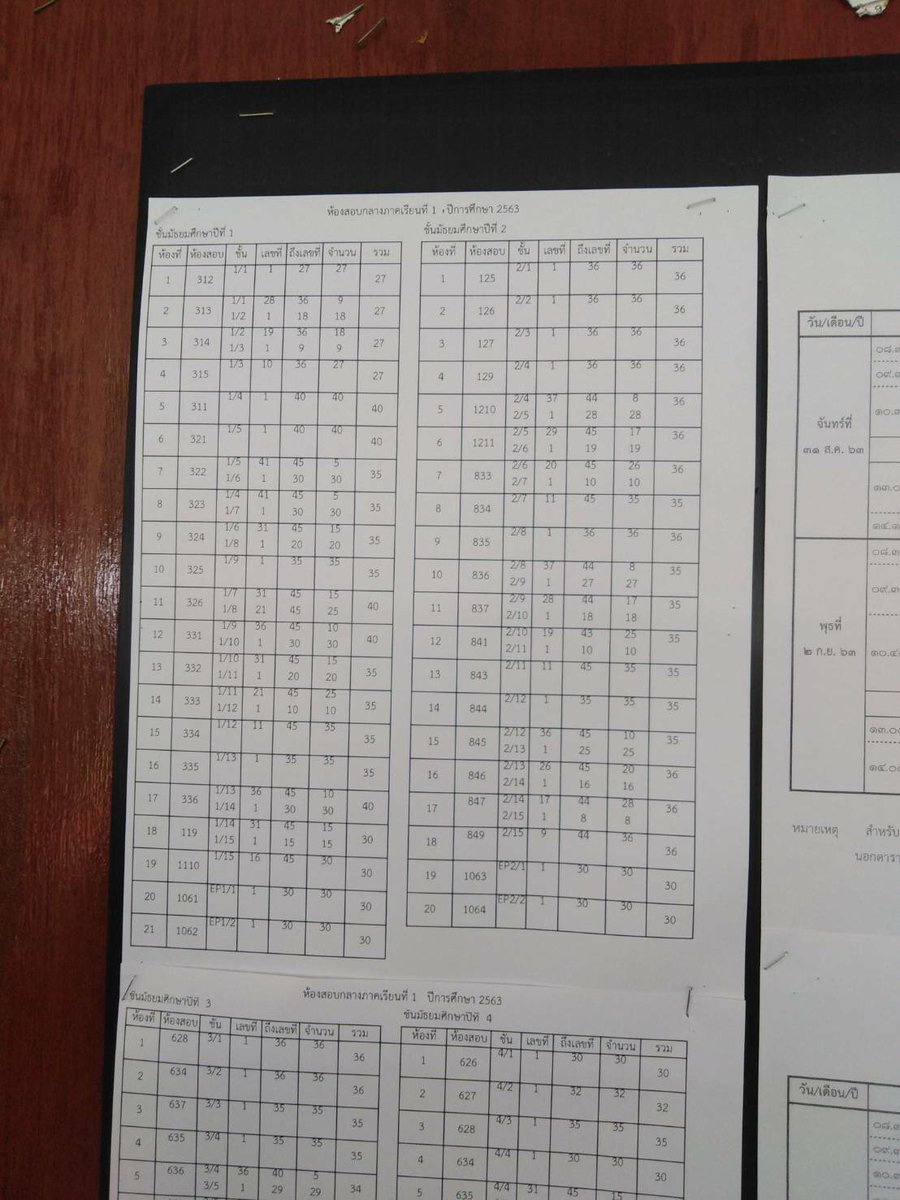 ห้องสอบกลางภาคเรียนที่ 1 ,ปีการศึกษา 2563
ชั้นมัธยมศึกษาปีที่ 1
ห้องที่ ห้องสอบ ชั้น เลขที่ ถึงเลขที่ จำนวน รวม
1 312 1/1 1 27 27 27
2 313 1/1 28 36 9 27
1/2 1 18 18
3 314 1/2 19 36 18 27
1/3 1 9 9
4 315 1/3 10 36 27 27
5 311 1/4 1 40 40 40
6 321 1/5 1 40 40 40
7 322 1/5 41 45 5 35
1/6 1 30 30
8 323 1/4 41 45 5 35
1/7 1 30 30
9 324 1/6 31 45 15 35
1/8 1 20 20
10 325 1/9 1 35 35 35
11 326 1/7 31 45 15 40
1/8 21 45 25
12 331 1/9 36 45 10 40
1/10 1 30 30
13 332 1/10 31 45 15 35
1/11 1 20 20
14 333 1/11 21 45 25 35
1/12 1 10 10
15 334 1/12 11 45 35 35
16 335 1/13 1 35 35 35
17 336 1/13 36 45 10 40
1/14 1 30 30
18 119 1/14 31 45 15 30
1/15 1 15 15
19 1110 1/15 16 45 30 30
20 1061 EP1/1 1 30 30 30
21 1062 EP1/2 1 30 30 30
ชั้นมัธยมศึกษาปีที่ 2
ห้องที่ ห้องสอบ ชั้น เลขที่ ถึงเลขที่ จำนวน รวม
1 125 2/1 1 36 36 36
2 126 2/2 1 36 36 36
3 127 2/3 1 36 36 36
4 129 2/4 1 36 36 36
5 1210 2/4 37 44 8 36
2/5 1 28 28
6 1211 2/5 29 45 17 36
2/6 1 19 19
7 833 2/6 20 45 26 36
2/7 1 10 10
8 834 2/7 11 45 35 35
9 835 2/8 1 36 36 36
10 836 2/8 37 44 8 35
2/9 1 27 27
11 837 2/9 28 44 17 35
2/10 1 18 18
12 841 2/10 19 43 25 35
2/11 1 10 10
13 843 2/11 11 45 35 35
14 844 2/12 1 35 35 35
15 845 2/12 36 45 10 35
2/13 1 25 25
16 846 2/13 26 45 20 36
2/14 1 16 16
17 847 2/14 17 44 28 36
2/15 1 8 8
18 849 2/15 9 44 36 36
19 1063 EP2/1 1 30 30 30
20 1064 EP2/2 1 30 30 30
ห้องสอบกลางภาคเรียนที่ 1 ปีการศึกษา 2563
ชั้นมัธยมศึกษาปีที่ 3
ห้องที่ ห้องสอบ ชั้น เลขที่ ถึงเลขที่ จำนวน รวม
1 628 3/1 1 36 36 36
2 634 3/2 1 36 36 36
3 637 3/3 1 35 35 35
4 635 3/4 1 35 35 35
5 636 3/4 36 40 5 34
3/5 1 29 29
ชั้นมัธยมศึกษาปีที่ 4
ห้องที่ ห้องสอบ ชั้น เลขที่ ถึงเลขที่ จำนวน รวม
1 626 4/1 1 30 30 30
2 627 4/2 1 32 32 32
3 628 4/3 1 35 35 35
4 634 4/4 1 30 30 30
5 635 4/4 31 45 15
วัน/เดือน/ปี
จันทร์ที่
๓๑ ส.ค. ๖๓
พุธที่
๒ ก.ย. ๖๓
หมายเหตุ สำหรับ
นอกตารา
วัน/เดือน/ปี